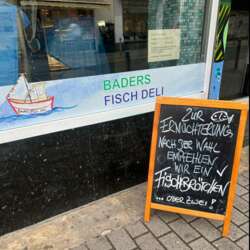 BADERS
FISCH DELI
ZUR
ERNÜCHTERUNG
NACH DER WAHL
EMPFEHLEN
WIR EIN
FISCHBRÖTCHEN
... ODER ZWEI!